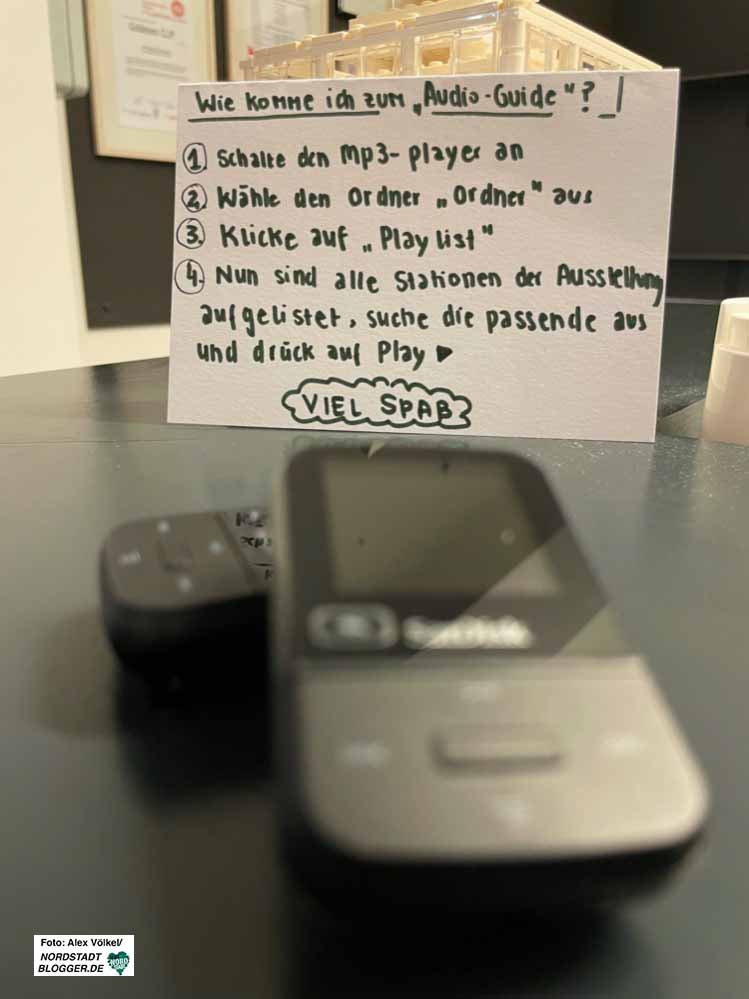 Wie komme ich zum „Audio-Guide"?
① Schalte den Mp3-player an
② Wähle den Ordner „Ordner" aus
③ Klicke auf „Playlist"
④ Nun sind alle Stationen der Ausstellung
aufgelistet, suche die passende aus
und drück auf Play ▶
VIEL SPAß
SanDisk
Foto: Alex Völkel/
NORDSTADT
BLOGGER.DE